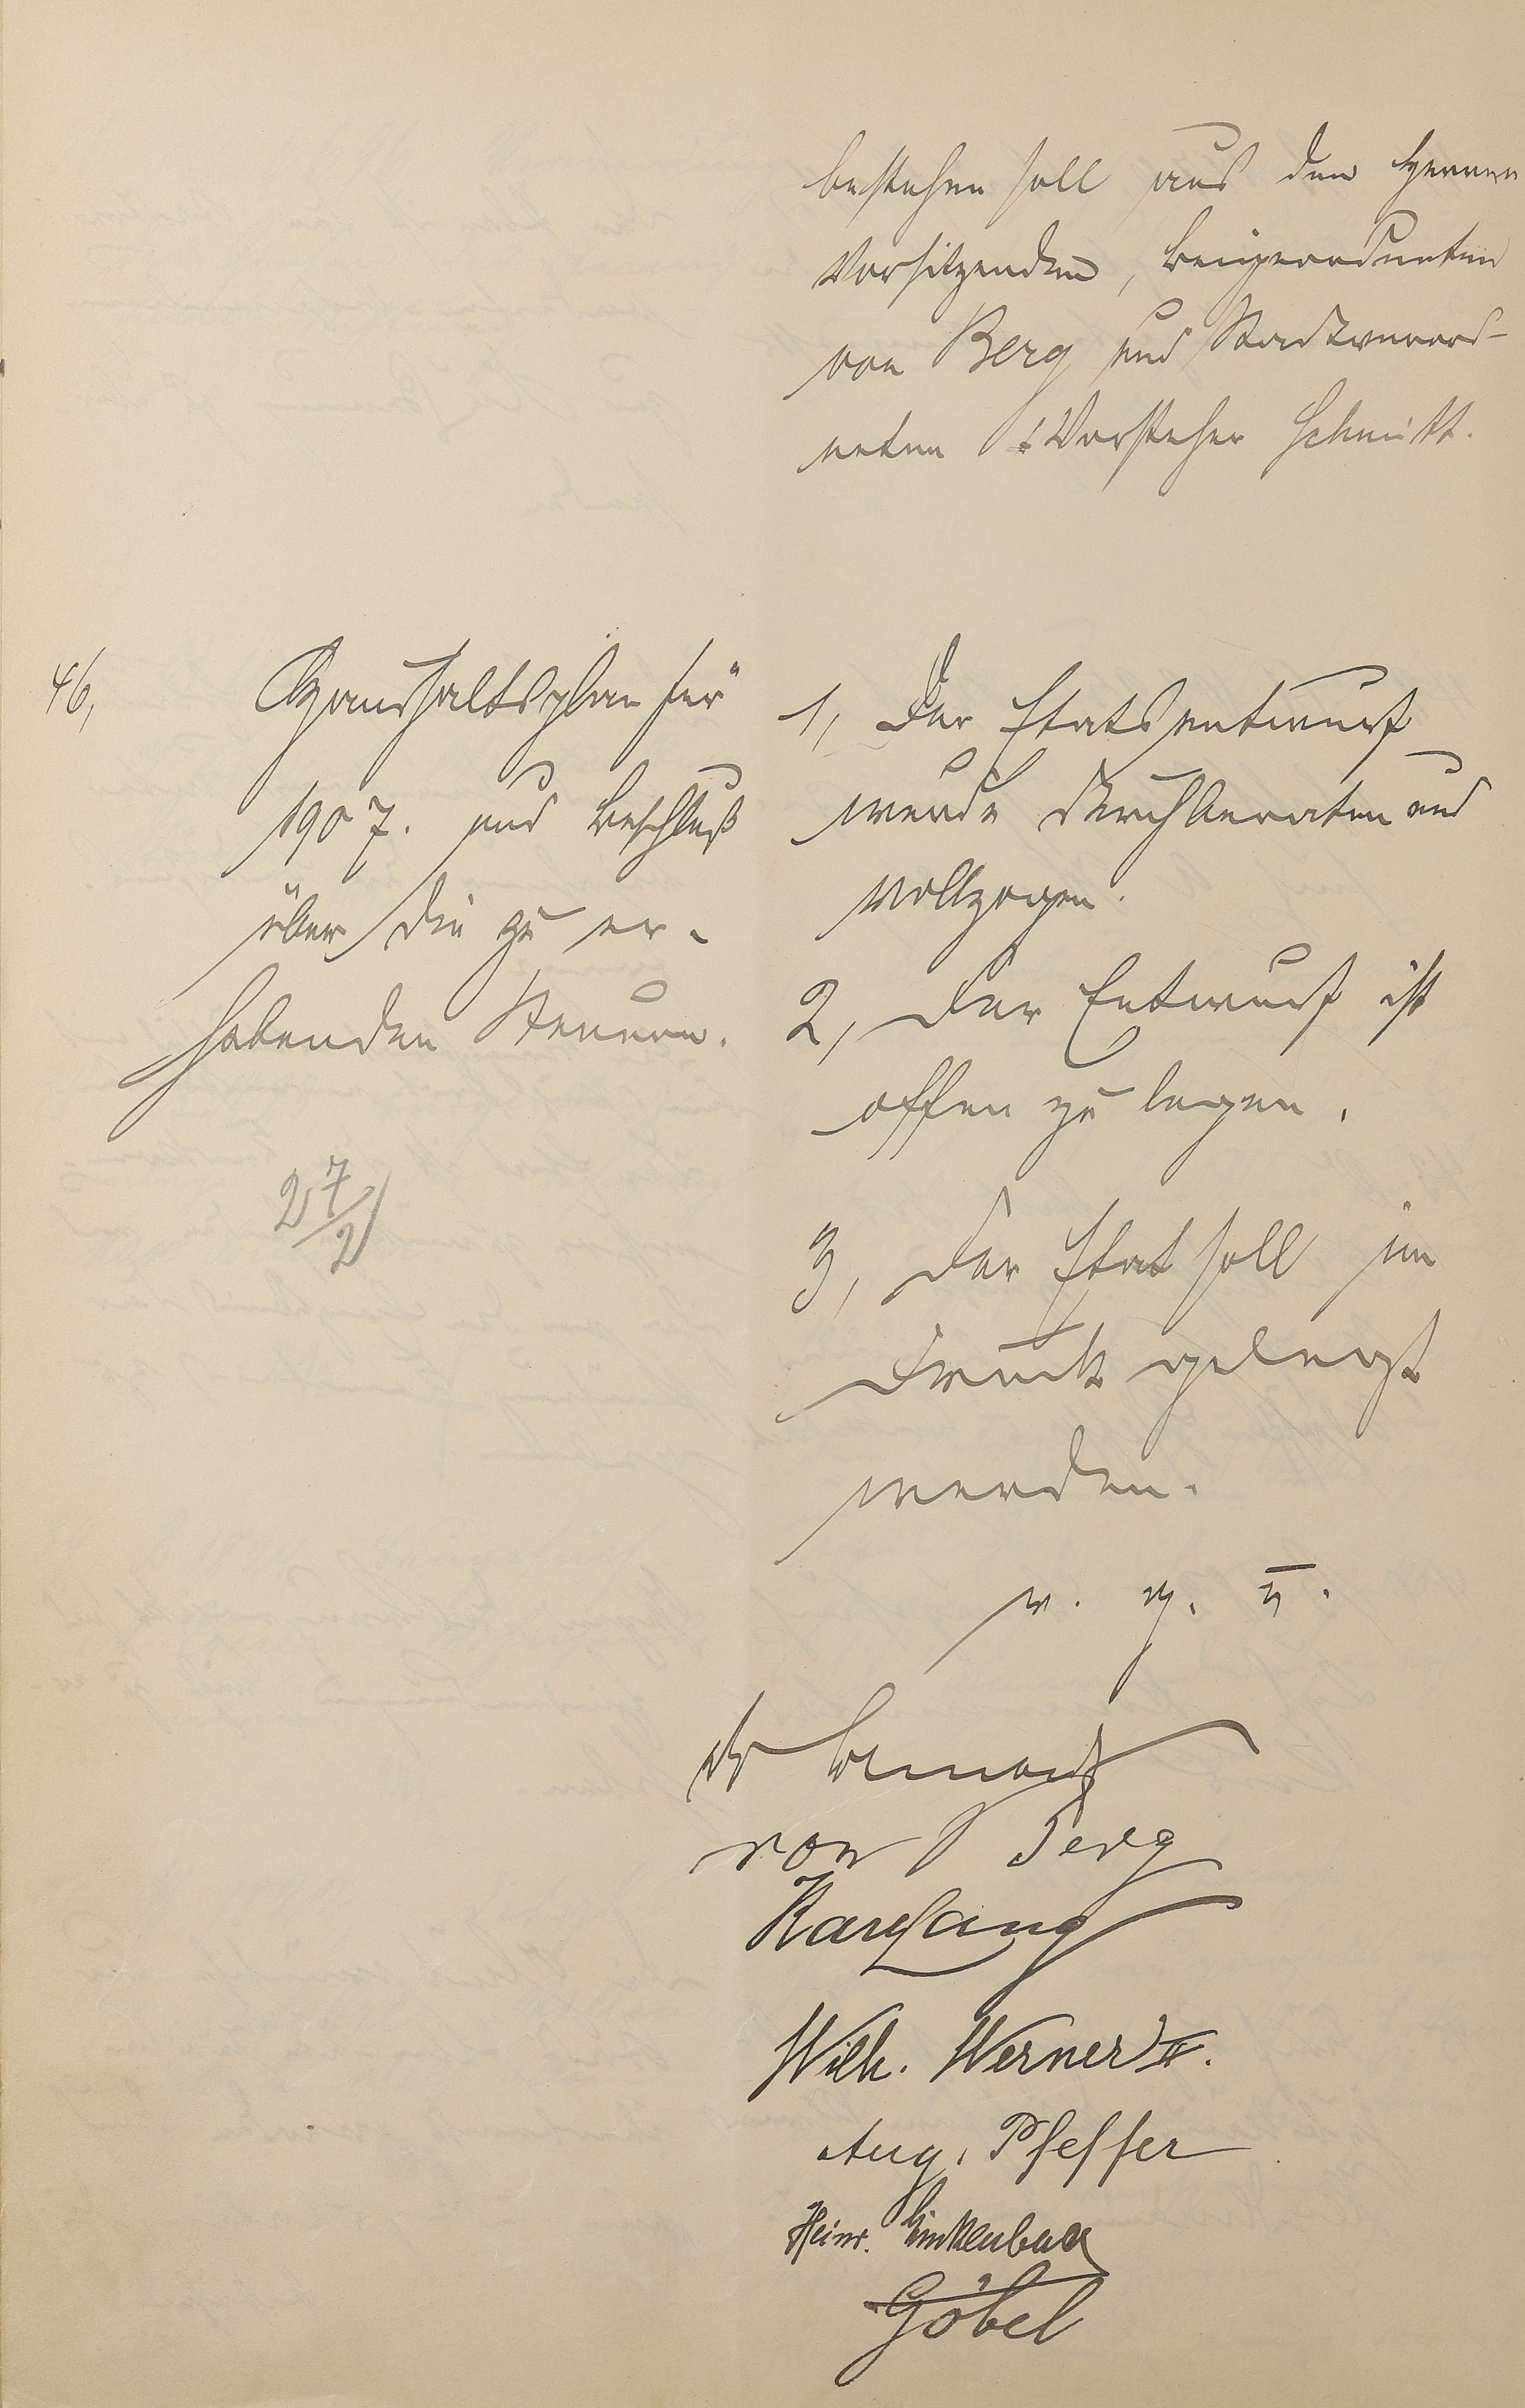 bestehen soll aus den Herren
Vorsitzenden, Beigeordneten
von Berg und Stadtverord-
neten-Vorsteher Schmitt.
46,
Haushaltsplan für
1907. und Beschluß
über die zu er-
hebenden Steuern.
27/2
1, Der Etatsentwurf
wurde durchberaten und
vollzogen.
2, Der Entwurf ist
offen zu legen.
3, Der Etat soll in
Druck gelegt
werden.
v. g. u.
von Berg
Karl Lang
Wilh. Werner II.
Aug. Pfeffer
Heinr. Linkenbach
Göbel